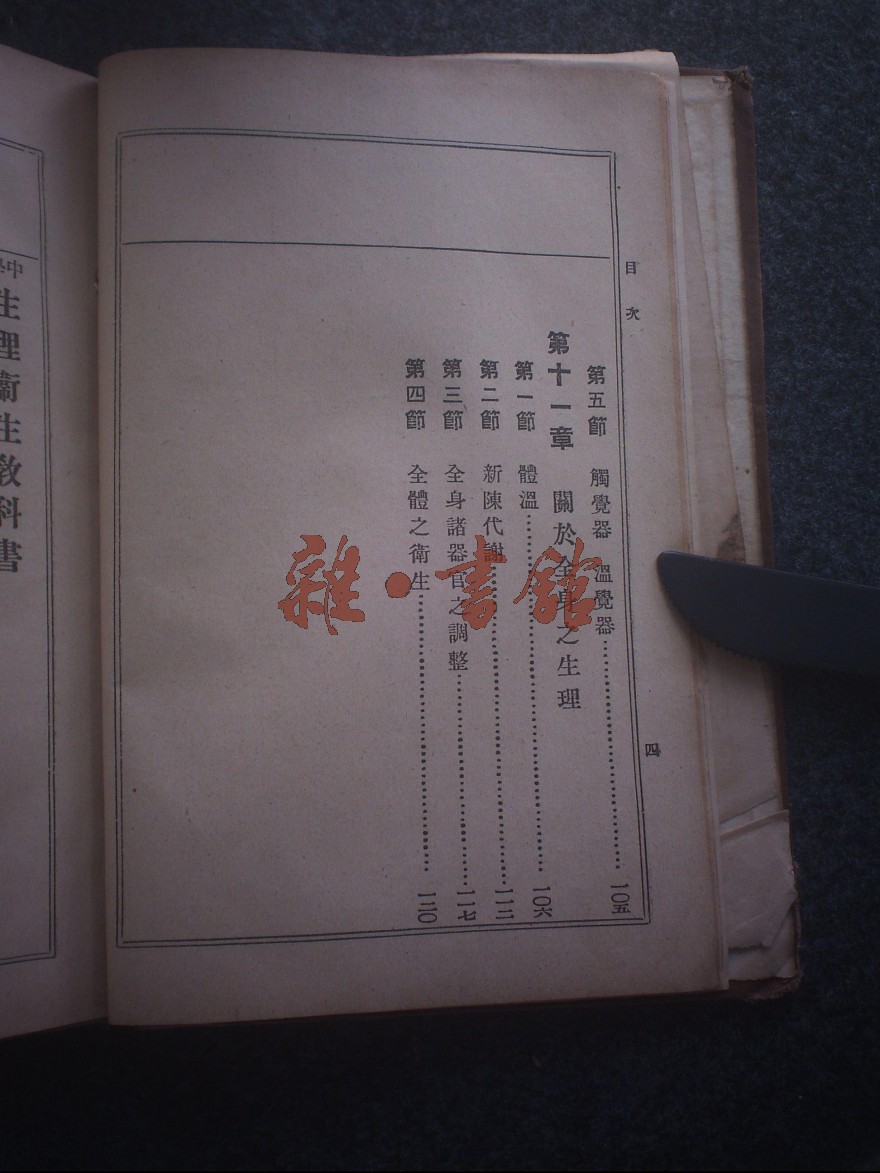 目次
第五節 觸覺器 溫覺器……一〇五
第十一章 關於全身之生理
第一節 體溫……一〇六
第二節 新陳代謝……一一二
第三節 全身諸器官之調整……一一七
第四節 全體之衛生……一二〇
四
中學
生理衞生教科書
雜·書館